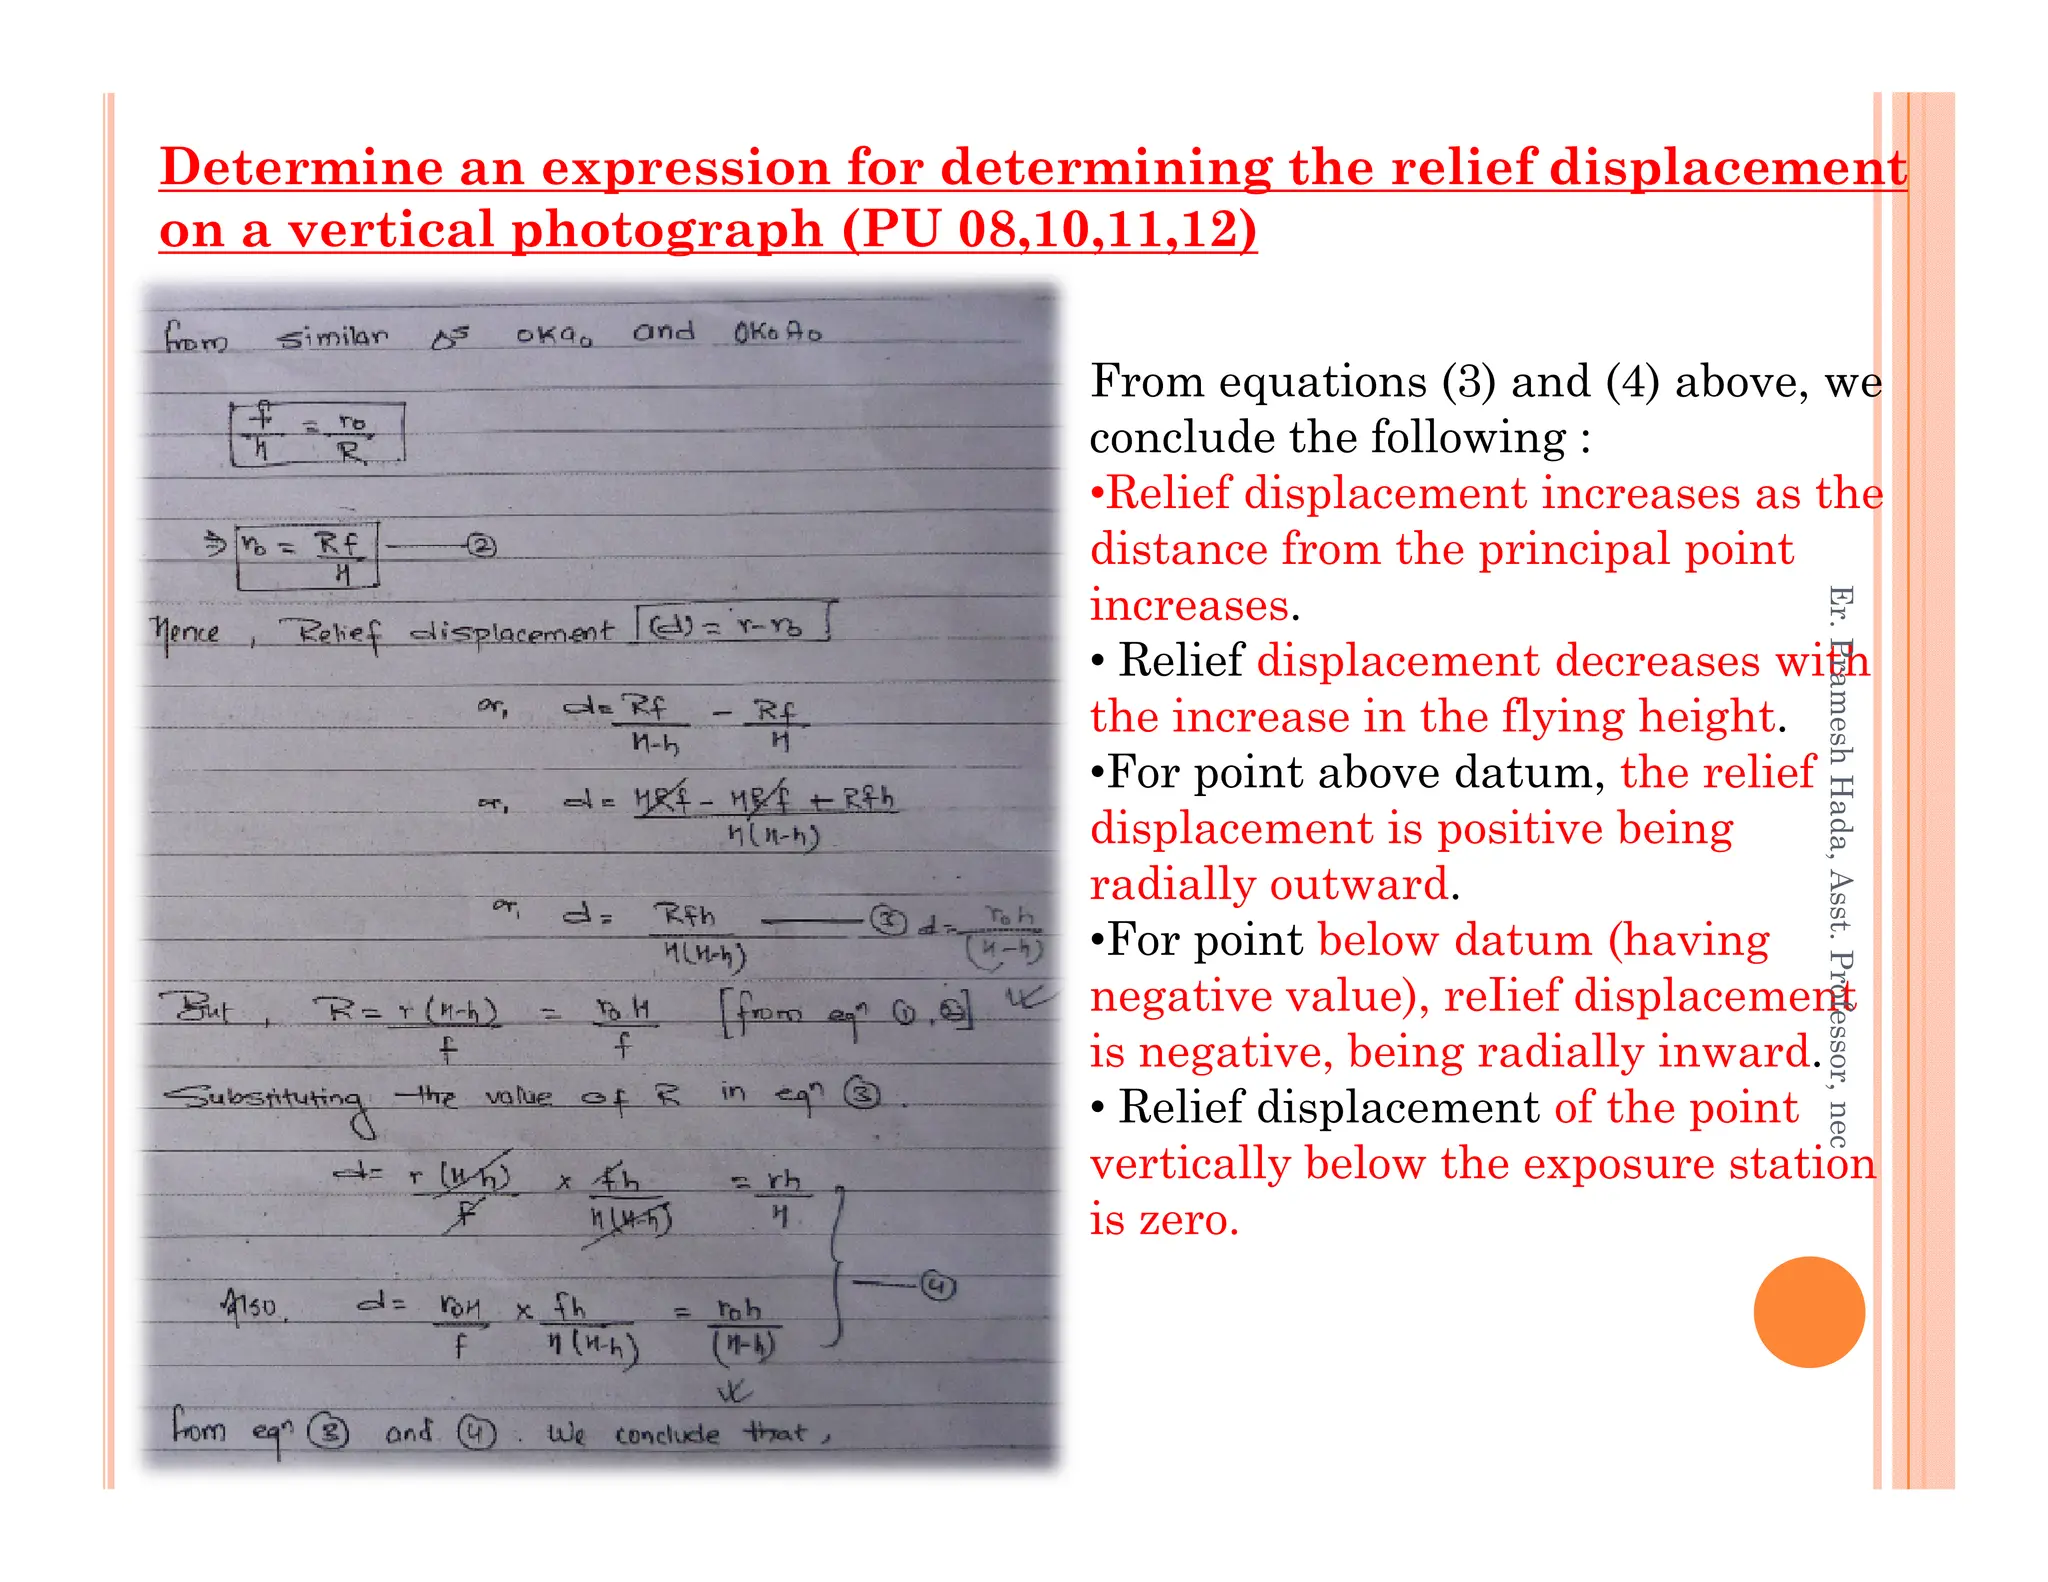 Determine an expression for determining the relief displacement
on a vertical photograph (PU 08,10,11,12)
from similar Δs oKa₀ and OK₀A₀
f/H = r₀/R
⇒ r₀ = Rf/H —— ②
Hence, Relief displacement (d) = r-r₀
or, d= Rf/H-h - Rf/H
or, d = HRf - HRf + Rfh / H(H-h)
or, d= Rfh/H(H-h) —— ③ d= r₀h/(H-h)
But, R= r(H-h)/f = r₀H/f [from eqⁿ ①,②]
Substituting the value of R in eqⁿ ③.
d= r(H-h)/f x fh/H(H-h) = rh/H
—— ④
Also, d= r₀H/f x fh/H(H-h) = r₀h/(H-h)
from eqⁿ ③ and ④. We conclude that,
From equations (3) and (4) above, we
conclude the following :
•Relief displacement increases as the
distance from the principal point
increases.
• Relief displacement decreases with
the increase in the flying height.
•For point above datum, the relief
displacement is positive being
radially outward.
•For point below datum (having
negative value), reIief displacement
is negative, being radially inward.
• Relief displacement of the point
vertically below the exposure station
is zero.
Er. Pramesh Hada, Asst. Professor, nec